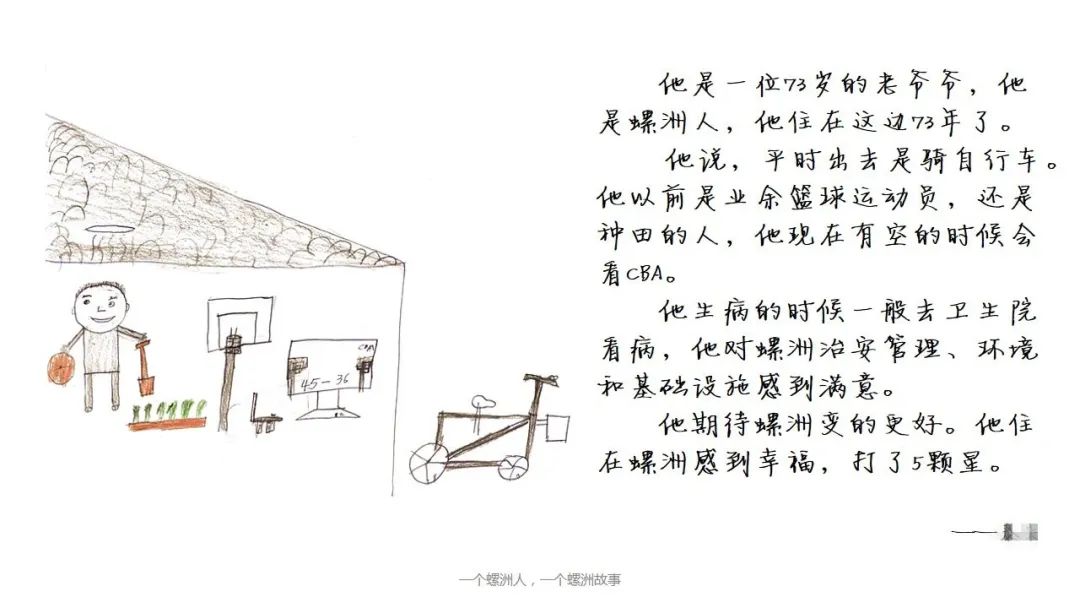 他是一位73岁的老爷爷，他
是螺洲人，他住在这边73年了。
他说，平时出去是骑自行车。
他以前是业余篮球运动员，还是
种田的人，他现在有空的时候会
看CBA。
他生病的时候一般去卫生院
看病，他对螺洲治安管理、环境
和基础设施感到满意。
他期待螺洲变的更好。他住
在螺洲感到幸福，打了5颗星。
CBA
45-36
一个螺洲人，一个螺洲故事